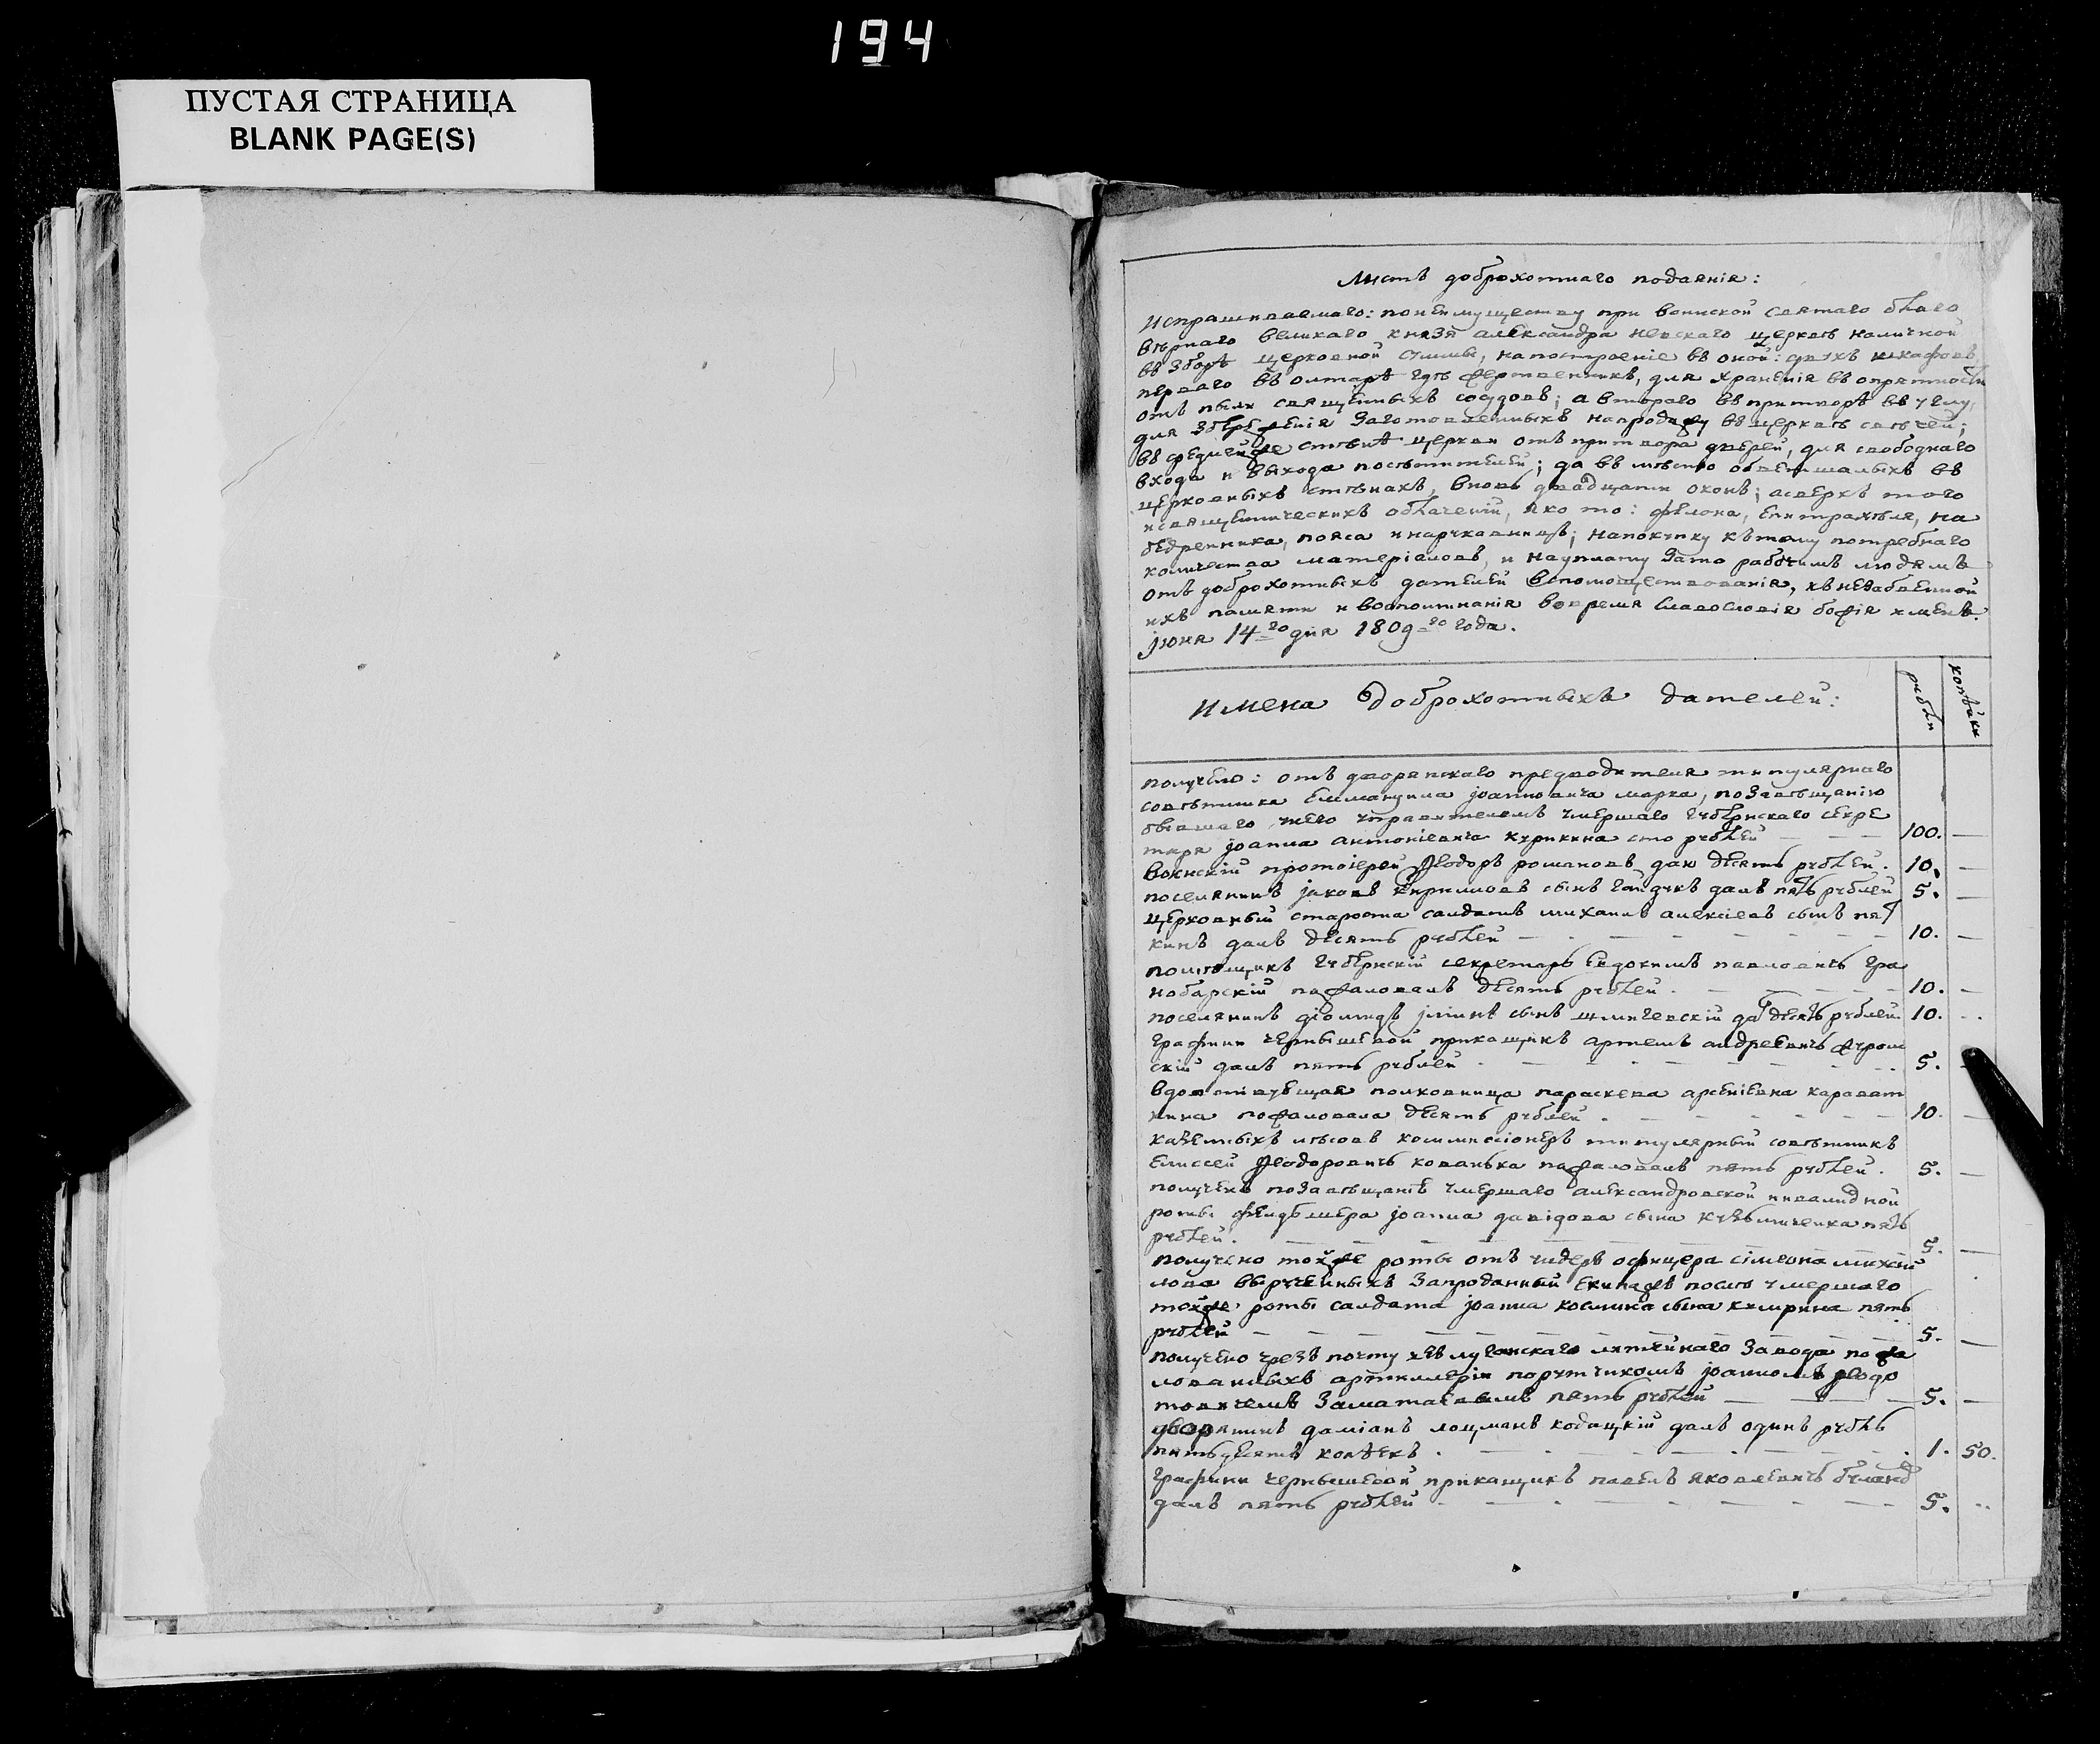 194
ПУСТАЯ СТРАНИЦА
BLANK PAGE(S)
Листъ доброхотнаго подаянія:
Испрашиваемаго: понеимуществу при воинской святаго благо
вѣрнаго великаго князя александра невскаго церквѣ наличной
въ зборѣ церковной суммы, напостроеніе въ оной: двухъ шкафовъ,
перваго въ олтарѣ гдѣ жертвенникъ, для храненія въ опрятности
отъ пыли священныхъ сосудовъ; а втораго въ притворѣ въ углу,
для збереженія заготовленныхъ напродажу въ церквѣ свѣчей;
въ средней же стѣнѣ церкви отъ притвора дверей, для свободнаго
входа и выхода посѣтителей; да въ мѣсто обветшалыхъ въ
церковныхъ стѣнахъ, вновь двадцати оконъ; асверхъ того
исвященническихъ облаченій, яко то: фелона, епитрахѣля, на
бедренника, пояса и наруковницъ; напокупку къ тому потребнаго
количества матеріаловъ, и науплату зато рабочимъ людямъ
отъ доброхотныхъ дателей вспомоществованія, къ незабвенной
ихъ памяти и воспоминанія вовремя славословія божія именъ.
Јюня 14-го дня 1809-го года.
Имена доброхотныхъ дателей:
рубли
копѣйки
получено: отъ дворянскаго предводителя титулярнаго
совѣтника Еммануила јоанновича марка, позавѣщанію
бывшаго унего управителемъ умершаго губернскаго секре
таря јоанна антоніевича курикина сто рублей 100. —
Воинскій протоіерей Ѳеодоръ романовъ дан десять рублей. 10. —
поселянинъ јаковъ Кирилловъ сынъ гайдукъ далъ пять рублей 5. —
церковный староста салдатъ михаилъ алексіевъ сынъ пя
кинъ далъ десять рублей 10. —
помѣщикъ губернскій секретарь Евдокимъ павловичъ гра
нобарскій пожаловалъ десять рублей. 10. —
поселянинъ діомидъ јлиинъ сынъ далъ десять рублей 10.
графини чернышевой прикащикъ артемъ андреевичъ
скій далъ пять рублей 5. —
вдовствующая полковница параскева арсеніевна карават
кина пожаловала десять рублей 10. —
казенныхъ лѣсовъ коммиссіонеръ титулярный совѣтникъ
Елиссей Ѳеодоровичъ кованька пожаловалъ пять рублей. 5. —
полученъ позавѣщанію умершаго александровской инвалидной
роты јоанна давідова сына кузьмиченка пять
рублей. 5. —
получено тойже роты отъ ундеръ офицера сімеона михай
лова вырученныхъ запроданный екипажъ послѣ умершаго
тойже роты салдата јоанна космина сына кимрина пять
рублей 5. —
получено чрезъ почту изъ луганскаго литейнаго завода пожа
лованныхъ артиллеріи порутчикомъ јоанномъ ѳеодо
товичемъ пять рублей 5. —
дворянинъ даміанъ лоцманъ кодацкій далъ одинъ рубль
пятьдесятъ копѣекъ. 1. 50.
графини чернышевой прикащикъ павелъ яковлевичъ
далъ пять рублей 5.